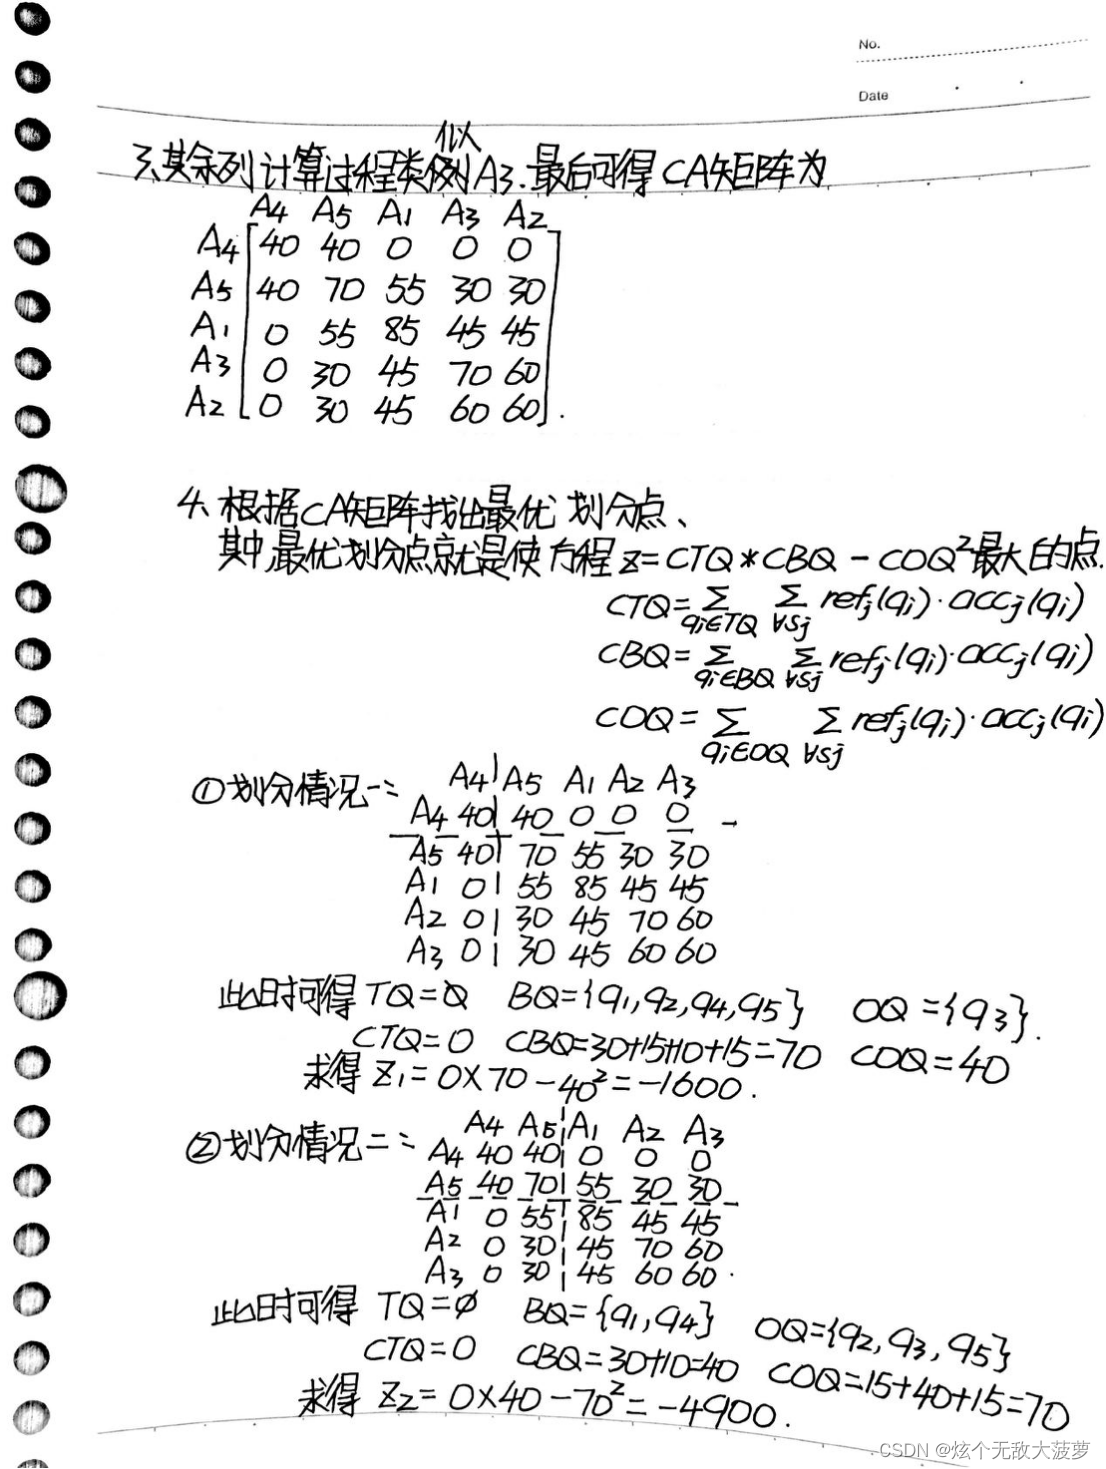 No.
Date
似
3、其余列计算过程类例A3.最后可得CA矩阵为
A4 A5 A1 A3 A2
A4 40 40 0 0 0
A5 40 70 55 30 30
A1 0 55 85 45 45
A3 0 30 45 70 60
A2 0 30 45 60 60.
4、根据CA矩阵找出最优划分点、
其中,最优划分点就是使方程z=CTQ*CBQ-COQ²最大的点.
CTQ=∑qi∈TQ ∑∀Sj refj(qi)·accj(qi)
CBQ=∑qi∈BQ ∑∀Sj refj(qi)·accj(qi)
COQ=∑qi∈OQ ∑∀Sj refj(qi)·accj(qi)
①划分情况一:
A4 A5 A1 A2 A3
A4 40 40 0 0 0
A5 40 70 55 30 30
A1 0 55 85 45 45
A2 0 30 45 70 60
A3 0 30 45 60 60
此时可得 TQ=∅ BQ={q1,q2,q4,q5} OQ={q3}.
CTQ=0 CBQ=30+15+10+15=70 COQ=40
求得 Z1=0×70-40²=-1600.
②划分情况二:
A4 A5 A1 A2 A3
A4 40 40 0 0 0
A5 40 70 55 30 30
A1 0 55 85 45 45
A2 0 30 45 70 60
A3 0 30 45 60 60.
此时可得 TQ=∅ BQ={q1,q4} OQ={q2,q3,q5}
CTQ=0 CBQ=30+10=40 COQ=15+40+15=70
求得 Z2=0×40-70²=-4900.
CSDN @炫个无敌大菠萝